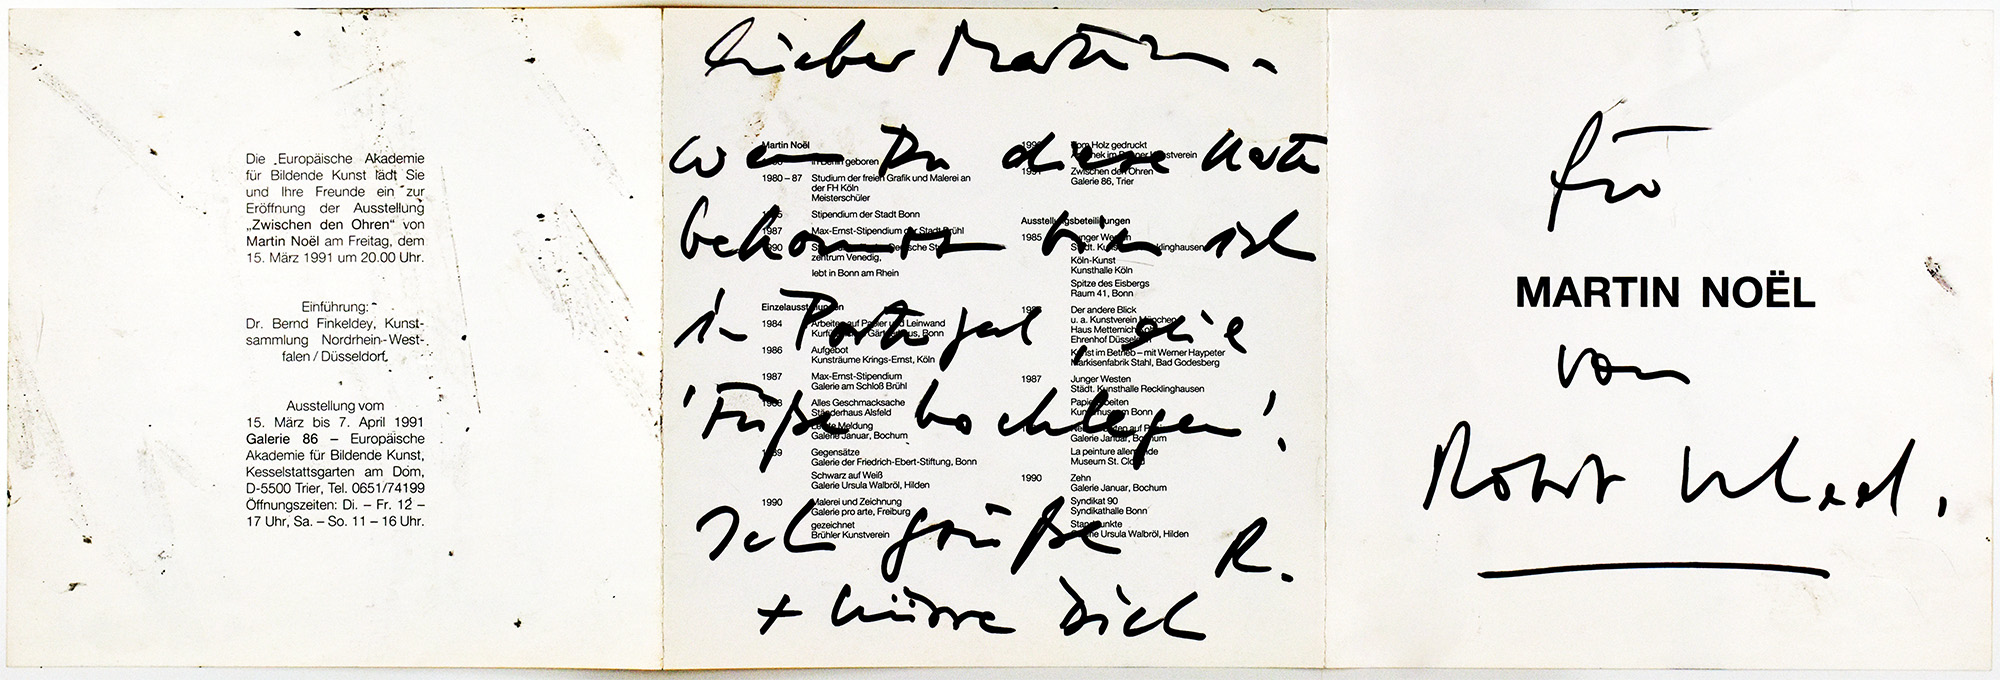 Die Europäische Akademie
für Bildende Kunst lädt Sie
und Ihre Freunde ein zur
Eröffnung der Ausstellung
„Zwischen den Ohren“ von
Martin Noël am Freitag, dem
15. März 1991 um 20.00 Uhr.
Einführung:
Dr. Bernd Finkeldey, Kunst-
sammlung Nordrhein-West-
falen / Düsseldorf.
Ausstellung vom
15. März bis 7. April 1991
Galerie 86 – Europäische
Akademie für Bildende Kunst,
Kesselstattsgarten am Dom,
D-5500 Trier, Tel. 0651/74199
Öffnungszeiten: Di. – Fr. 12 –
17 Uhr, Sa. – So. 11 – 16 Uhr.
Lieber Martin –
wenn Du diese Karte
bekommst bin ich
in Portugal, die
'Füße hochlegen'.
Ich grüße R.
+ küsse Dich
Martin Noël
in Berlin geboren
1980 – 87 Studium der freien Grafik und Malerei an
der FH Köln
Meisterschüler
Stipendium der Stadt Bonn
1987 Max-Ernst-Stipendium der Stadt Brühl
1990
zentrum Venedig,
lebt in Bonn am Rhein
Einzelausstellungen
1984 Arbeiten auf Papier und Leinwand
Bonn
1986 Aufgebot
Kunsträume Krings-Ernst, Köln
1987 Max-Ernst-Stipendium
Galerie am Schloß Brühl
1988 Alles Geschmacksache
Ständerhaus Alsfeld
Letzte Meldung
Galerie Januar, Bochum
1989 Gegensätze
Galerie der Friedrich-Ebert-Stiftung, Bonn
Schwarz auf Weiß
Galerie Ursula Walbröl, Hilden
1990 Malerei und Zeichnung
Galerie pro arte, Freiburg
gezeichnet
Brühler Kunstverein
1990 Vom Holz gedruckt
Kunstverein
1991 Zwischen den Ohren
Galerie 86, Trier
Ausstellungsbeteiligungen
1985 Junger Westen
Städt. Kunsthalle Recklinghausen
Köln-Kunst
Kunsthalle Köln
Spitze des Eisbergs
Raum 41, Bonn
Der andere Blick
u. a. Kunstverein München
Haus Metternich
Ehrenhof Düsseldorf
Kunst im Betrieb – mit Werner Haypeter
Markisenfabrik Stahl, Bad Godesberg
1987 Junger Westen
Städt. Kunsthalle Recklinghausen
Papierarbeiten
Kunstmuseum Bonn
Galerie Januar, Bochum
La peinture allemande
Museum St. Cloud
1990 Zehn
Galerie Januar, Bochum
Syndikat 90
Syndikathalle Bonn
Standpunkte
Galerie Ursula Walbröl, Hilden
für
MARTIN NOËL
von
Robert